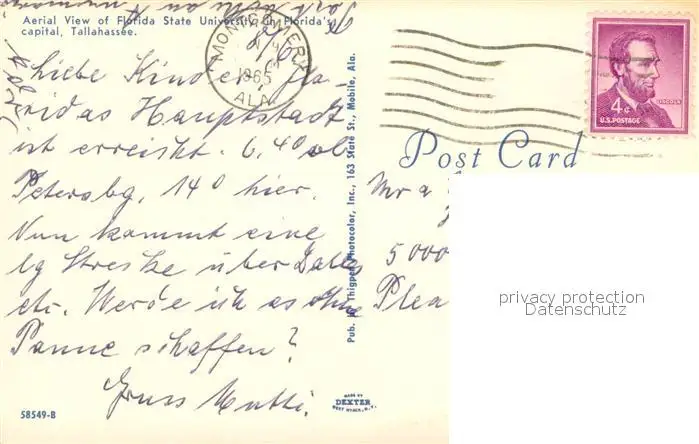 Aerial View of Florida State University in Florida's
capital, Tallahassee.
MONTGOMERY
1965
ALA.
LINCOLN
4¢
U.S. POSTAGE
Post Card
Liebe Kinder, Flo-
ridas Hauptstadt
ist erreicht. 6,40 ab
Petersbg, 140 hier.
Nun kommt eine
lg Strecke über Dallas
etc. Werde ich es ohne
Panne schaffen?
Gruss Mutti.
Pub. by Thigpen Photocolor, Inc., 163 State St., Mobile, Ala.
Mr a
5000
Plea
privacy protection
Datenschutz
MADE BY
DEXTER
WEST NYACK, N.Y.
58549-B